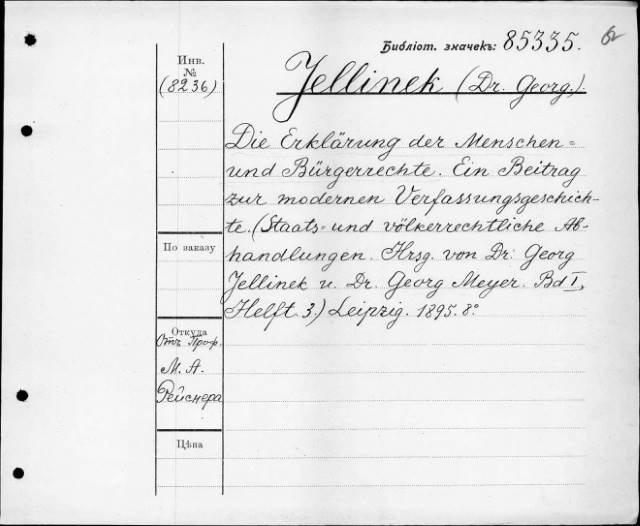 Библіот. значекъ: 85335.
62
Инв.
№
(8236)
Jellinek (Dr. Georg.).
Die Erklärung der Menschen=
und Bürgerrechte. Ein Beitrag
zur modernen Verfassungsgeschich-
te. (Staats- und völkerrechtliche Ab-
handlungen. Hrsg. von Dr. Georg
Jellinek u. Dr. Georg Meyer. Bd I,
Helft 3.) Leipzig. 1895. 8º
По заказу
Откуда
Отъ Проф.
М. А.
Рейснера
Цѣна